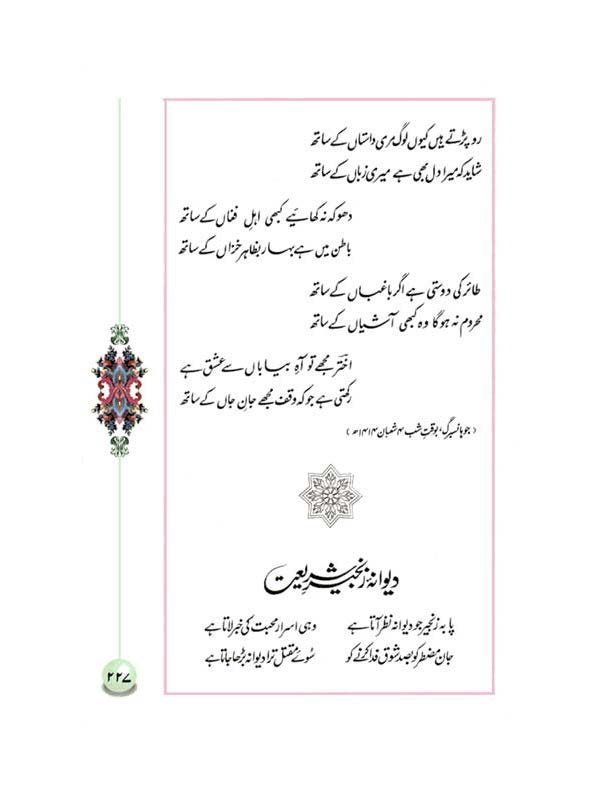 رو پڑتے ہیں کیوں لوگ مری داستاں کے ساتھ
شاید کہ میرا دل بھی ہے میری زباں کے ساتھ
دھوکہ نہ کھائیے کبھی اہلِ فغاں کے ساتھ
باطن میں ہے بہار بظاہر خزاں کے ساتھ
طائر کی دوستی ہے اگر باغباں کے ساتھ
محروم نہ ہوگا وہ کبھی آشیاں کے ساتھ
اخترؔ مجھے تو آہِ بیاباں سے عشق ہے
رکھتی ہے جو کہ وقف مجھے جانِ جاں کے ساتھ
(جوہانسبرگ، بوقتِ شب ۴ شعبان ۱۴۱۴ھ)
دیوانۂ زنجیرِ شریعت
پا بہ زنجیر جو دیوانہ نظر آتا ہے وہی اسرارِ محبت کی خبر لاتا ہے
جانِ مضطر کو بصد شوق فدا کرنے کو سُوئے مقتل ترا دیوانہ بڑھا جاتا ہے
۲۲۷